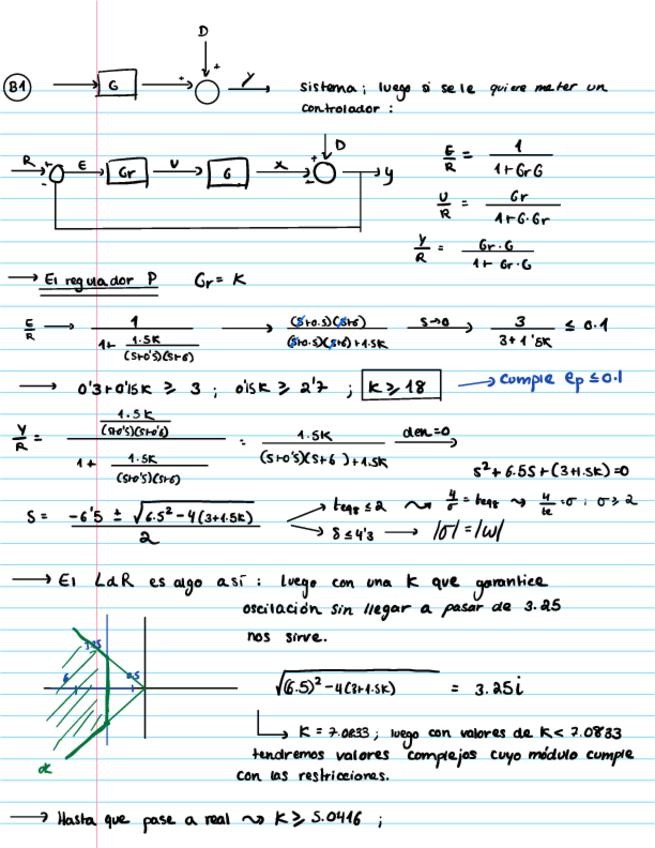 B1 G D + + Y sistema; luego si se le quiere meter un
controlador:
R + - E Gr U G X + D y
E/R = 1/(1+GrG)
U/R = Gr/(1+G·Gr)
Y/R = Gr·G/(1+Gr·G)
→ El regulador P Gr = K
E/R → 1/(1+ 1.5K/((s+0's)(s+6))) → (s+0.s)(s+6)/((s+0.s)(s+6)+1.5K) s→0 → 3/(3+1'5K) ≤ 0.1
→ 0'3+0'15K ≥ 3 ; 0'15K ≥ 2'7 ; K ≥ 18 → cumple ep ≤ 0.1
Y/R = (1.5K/((s+0's)(s+0's)))/(1+ 1.5K/((s+0's)(s+6))) = 1.5K/((s+0's)(s+6)+1.5K) den=0 →
s²+6.5s+(3+1.5K)=0
S = (-6'5 ± √(6.5²-4(3+1.5K)))/2 → teqs ≤ 2 ⇝ 4/σ = teqs ⇝ 4/te = σ ; σ ≥ 2
→ δ ≤ 4'3 → |σ| = |ω|
→ El LdR es algo así: luego con una K que garantice
oscilación sin llegar a pasar de 3.25
nos sirve.
3.25 6 0.5
√((6.5)²-4(3+1.5K)) = 3.25i
→ K = 7.0833 ; luego con valores de K < 7.0833
tendremos valores complejos cuyo módulo cumple
con las restricciones.
→ Hasta que pase a real ⇝ K ≥ 5.0416 ;